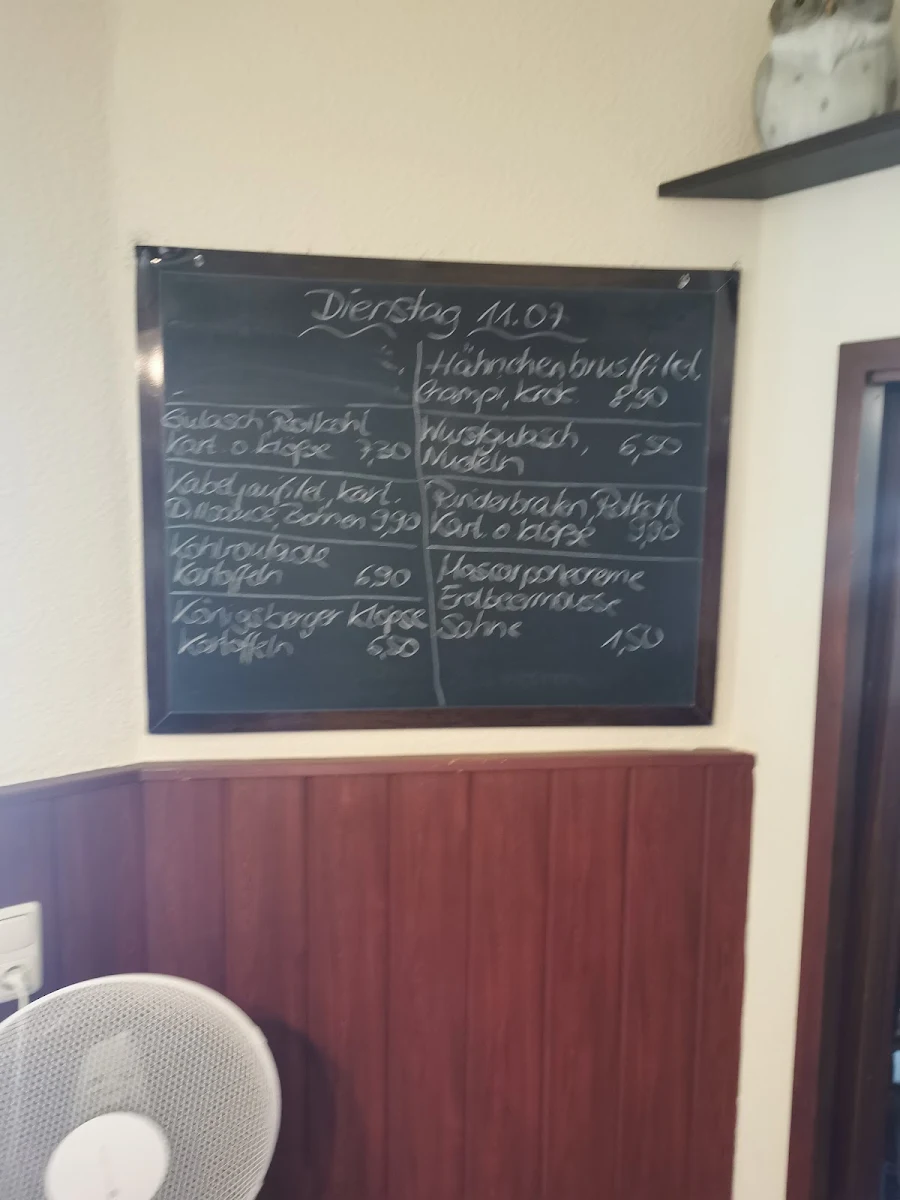 Dienstag 11.07
Gulasch, Rotkohl
Kart. o Klöße 7,30
Kabeljaufilet, Kart.
Dillsauce, Bohnen 9,90
Kohlroulade
Kartoffeln 6,90
Königsberger Klopse
Kartoffeln 6,50
Hähnchenbrustfilet
Champi, Krok. 8,90
Wurstgulasch,
Nudeln 6,50
Rinderbraten, Rotkohl
Kart. o Klöße 9,90
Mascarponecreme
Erdbeermousse
Sahne 1,50